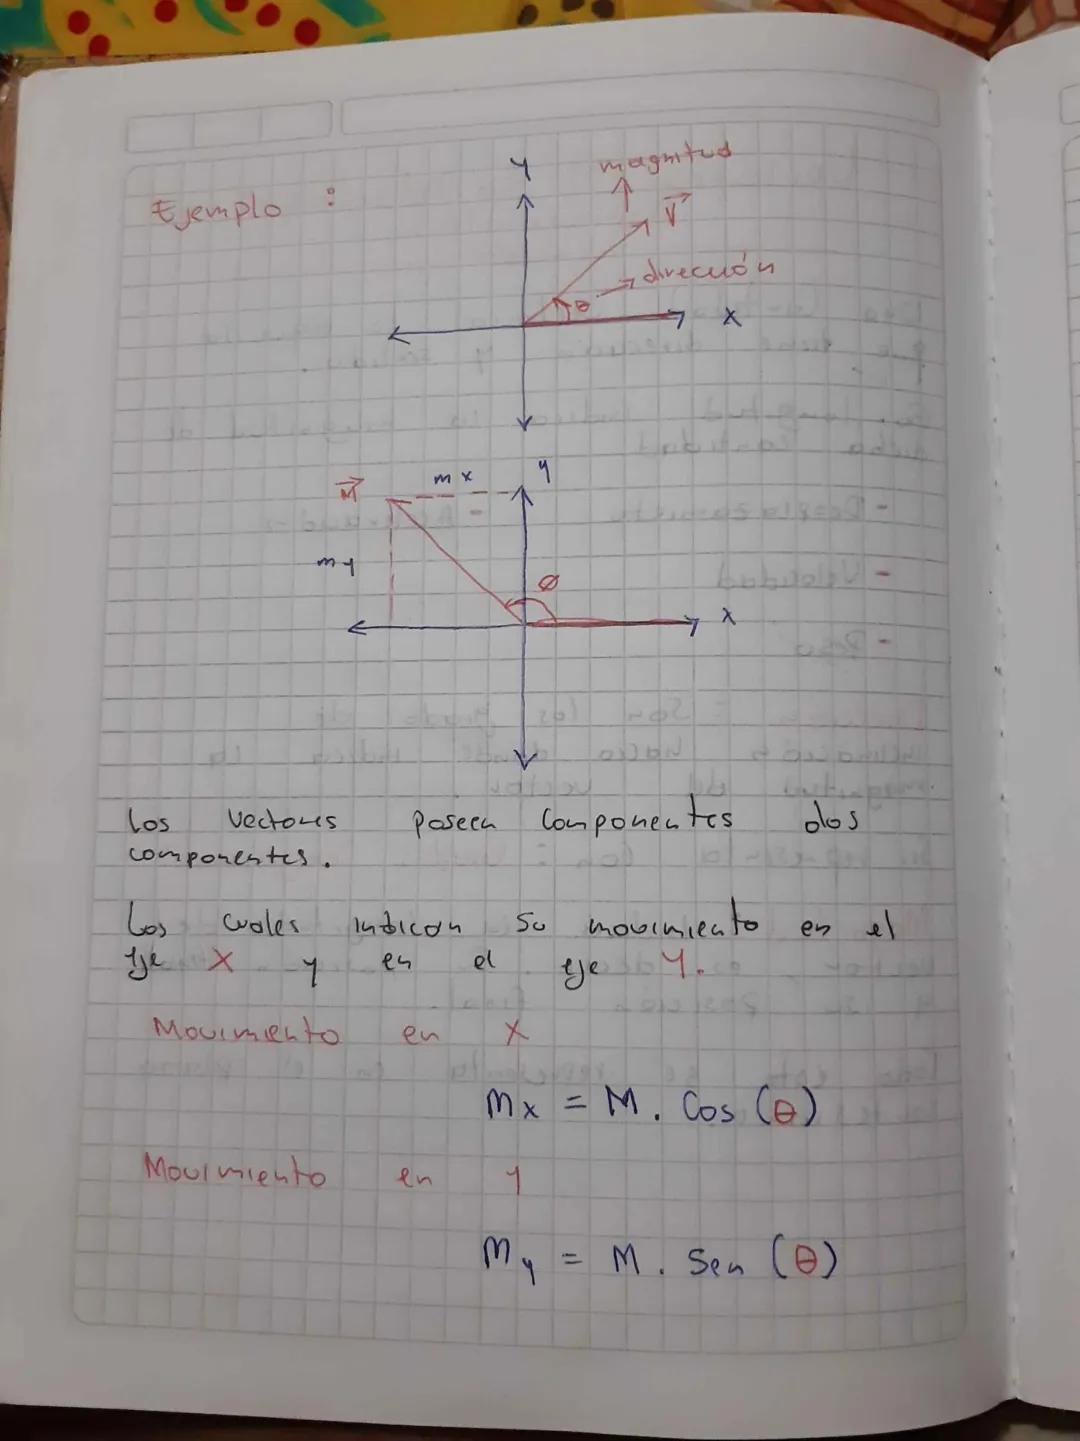 y
magnitud
Ejemplo :
V
dirección
θ
x
M
mx
y
my
Ø
x
Los vectores poseen componentes dos
componentes.
Los cuales indican su movimiento en el
eje X y en el eje Y.
Movimiento en X
mx = M . Cos (θ)
Movimiento en y
my = M . Sen (θ)